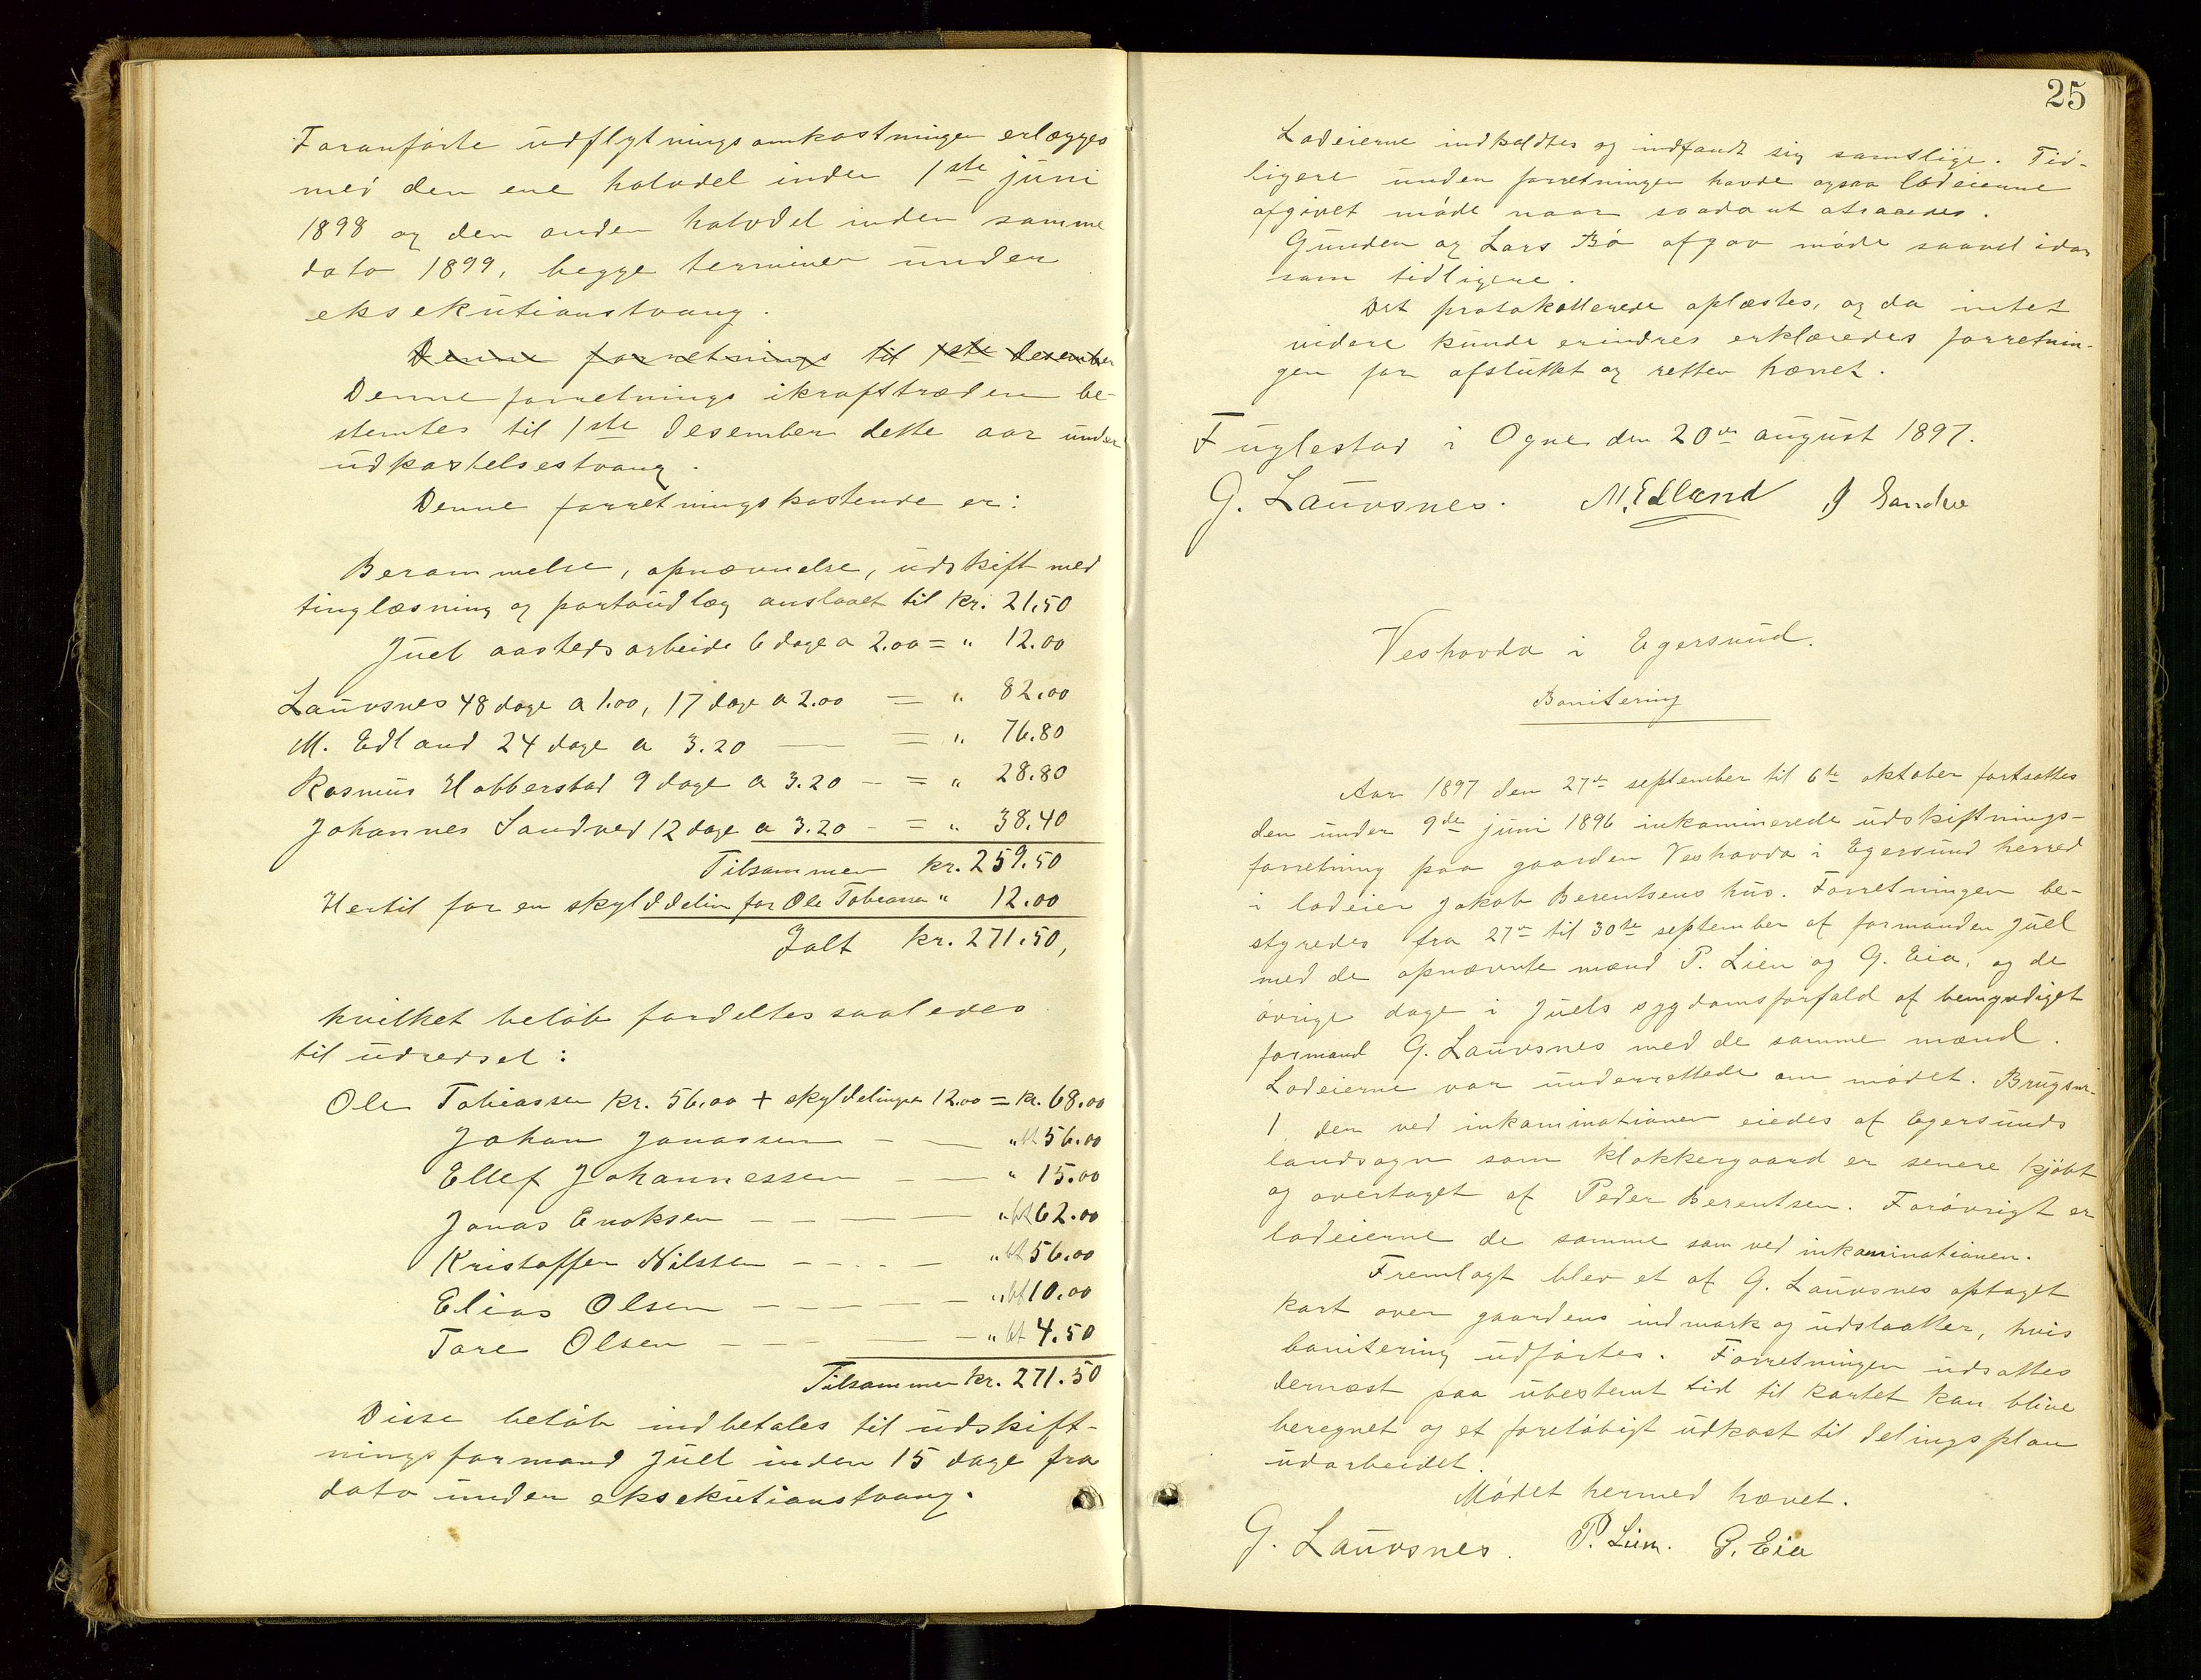 Foranførte udflytningsomkostninger erlægges
med den ene halvdel inden 1ste juni
1898 og den anden halvdel inden samme
dato 1899, begge terminer under
eksekutionstvang.
Denne forretnings til 1ste desember
Denne forretnings ikrafttræden be-
stemtes til 1ste desember dette aar under
udkastelsestvang.
Denne forretnings kostende er:
Berammelse, opnævnelse, udskift med
tinglæsning og portoudlæg anslaaet til kr. 21.50
Juel aastedsarbeide 6 dage a 2.00 = " 12.00
Lauvsnes 48 dage a 1.00, 17 dage a 2.00 = " 82.00
M. Edland 24 dage a 3.20 — = " 76.80
Rasmus Habberstad 9 dage a 3.20 - = " 28.80
Johannes Sandved 12 dage a 3.20 - = " 38.40
Tilsammen kr. 259.50
Hertil for en skylddelin for Ole Tobiassen " 12.00
Ialt kr. 271.50,
hvilket beløb fordeltes saaledes
til udredsel:
Ole Tobiassen kr. 56.00 + skyldelingen 12.00 = kr. 68.00
Johan Jonassen - — " bt 56.00
Ellef Johannessen - — " 15.00
Jonas Enoksen - - — — " bt 62.00
Kristoffer Nilsen - - - - — " bt 56.00
Elias Olsen - - - — - " bt 10.00
Tore Olsen - - - — - " bt 4.50
Tilsammen kr. 271.50
Disse beløb indbetales til udskift-
ningsformand Juel inden 15 dage fra
dato under eksekutionstvang.
25
Lodeierne indkaldtes og indfandt sig samtlige. Tid-
ligere under forretningen havde ogsaa lodeierne
afgivet møde naar saadant atraaedes.
Gunden og Lars Bø afgav møde saavel idag
som tidligere.
Det protokollerede oplæstes, og da intet
videre kunde erindres erklæredes forretnin-
gen for afsluttet og retten hævet.
Fuglestad i Ogne den 20de august 1897.
G. Lauvsnes. M. Edland J Sandve
Veshovda i Egersund.
Bonitering
Aar 1897 den 27de september til 6te oktober fortsattes
den under 9de juni 1896 inkaminerede udskiftnings-
forretning paa gaarden Veshovda i Egersund herred
i lodeier Jakob Berentsens hus. Forretningen be-
styredes fra 27de til 30te september af formanden Juel
med de opnævnte mænd P. Lien og G. Eia, og de
øvrige dage i Juels sygdomsforfald af bemyndiget
formand G. Lauvsnes med de samme mænd.
Lodeierne var underrettede om mødet. Brugsnr.
1 den ved inkaminationen eiedes af Egersunds
landsogn som klokkergaard er senere kjøbt
og overtaget af Peder Berentsen. Forøvrigt er
lodeierne de samme som ved inkaminationen.
Fremlagt blev et af G. Lauvsnes optaget
kart over gaardens indmark og udslaatter, hvis
bonitering udførtes. Forretningen udsattes
dernæst paa ubestemt tid til kartet kan blive
beregnet og et foreløbigt udkast til delingsplan
udarbeidet.
Mødet hermed hævet.
G. Lauvsnes. P. Lien. G. Eia